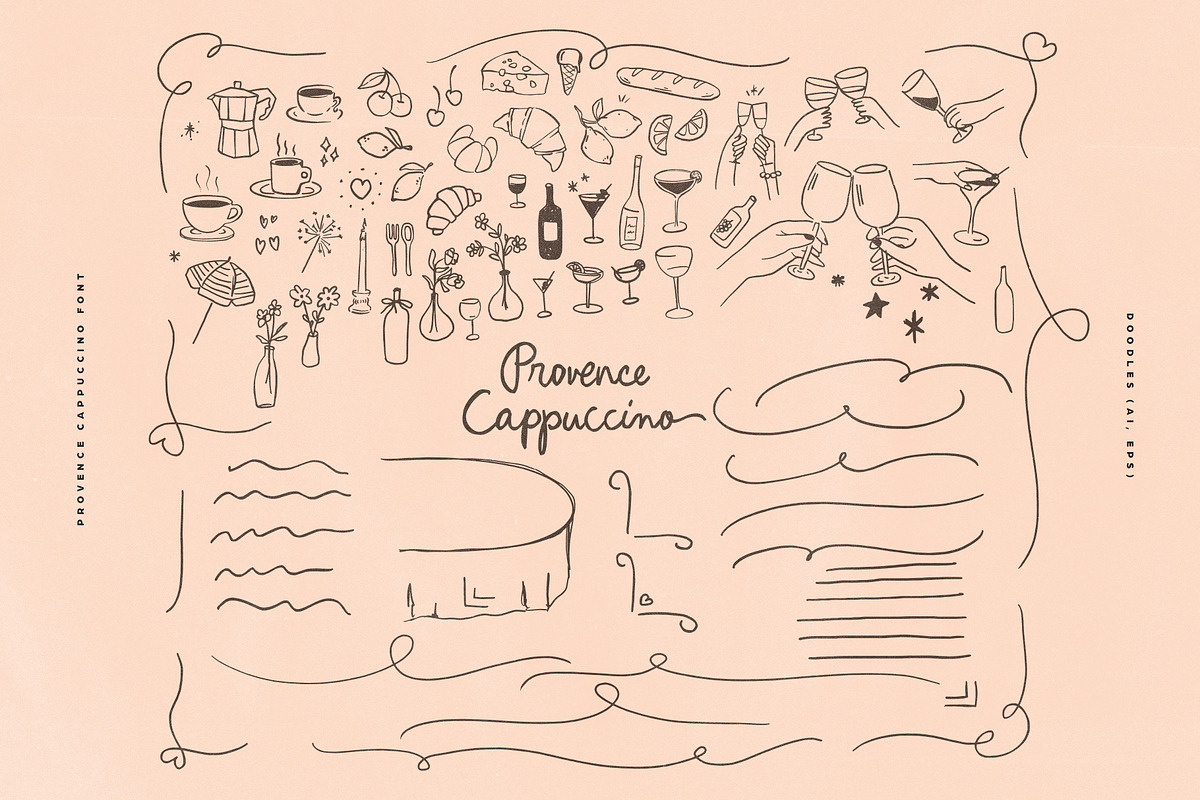 PROVENCE CAPPUCCINO FONT
Provence
Cappuccino
DOODLES (AI, EPS)